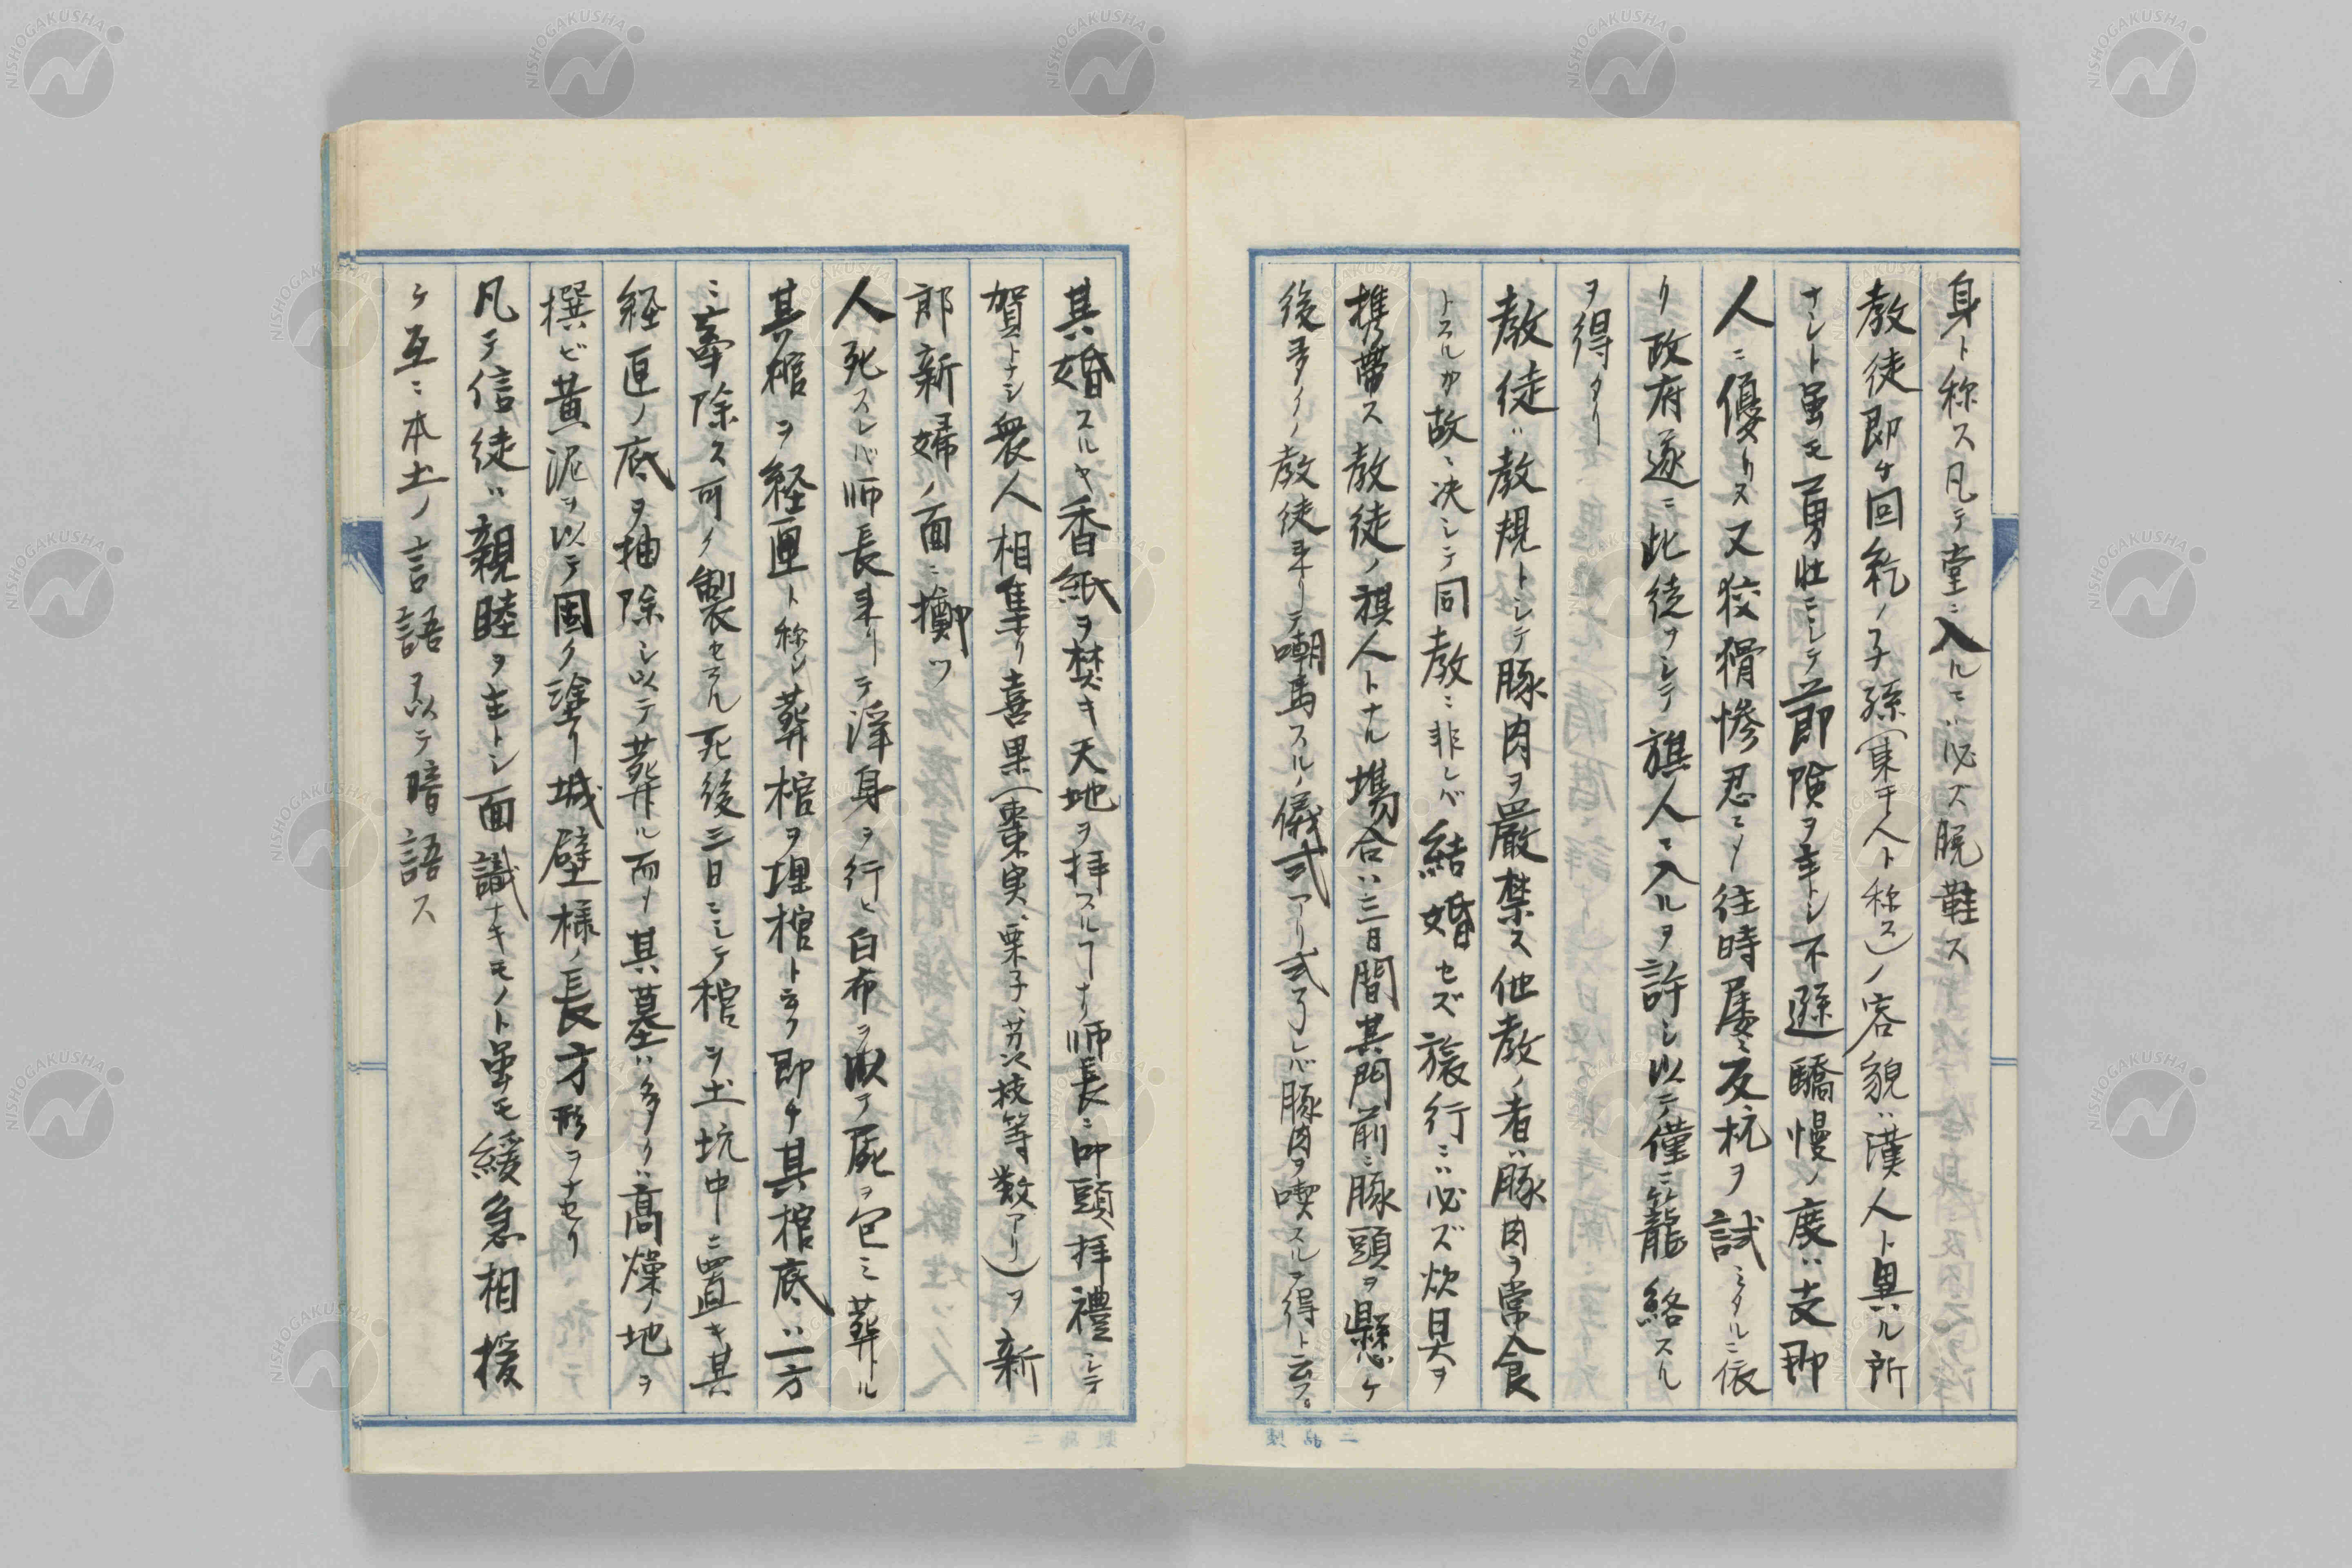 身ト称ス凡テ堂ニ入ルニハ必ズ脱鞋ス
教徒即チ回紇ノ子孫(東干人ト称ス)ノ容貌ハ漢人ト異ル所
ナシト虽モ勇壮ニシテ節険ヲ車トシ不遜驕慢ノ度ハ支那
人ニ優リス又狡猾惨忍ニメ往時屡〻反抗ヲ試ミタルニ依
リ政府遂ニ此徒ヲシテ旗人ニ入ルヲ許シ以テ僅ニ籠絡スル
ヲ得タリ
教徒ハ教規トシテ豚肉ヲ厳禁ス他教ノ者ハ豚肉ヲ常食
トスルカ故ニ决シテ同教ニ非レバ結婚セズ旅行ニハ必ズ炊具ヲ
携帯ス教徒ノ旗人トナル場合ハ三日間其門前ニ豚頭ヲ懸ケ
後多クノ教徒来リテ嘲罵スルノ儀式アリ式了レバ豚肉ヲ喫スルヲ得ト云フ。
其婚スルヤ香紙ヲ焚キ天地ヲ拝スルヿナク師長ニ叩頭拝禮シテ
賀トナシ衆人相集リ喜果(棗実、栗子、芬次枝等数アリ)ヲ新
郎新婦ノ面ニ擲ツ
人死スレバ師長来リテ淨身ヲ行ヒ白布ヲ以テ屍ヲ包ミ葬ル
其棺ヲ経匣ト称シ葬棺ヲ埋棺ト云フ即チ其棺底ハ一方
ニ牽除ス可ク製セラル死後三日ニシテ棺ヲ土坑中ニ置キ其
経匣ノ底ヲ抽除シ以テ葬ル而メ其墓ハ多クハ高燥ノ地ヲ
撰ビ黄泥ヲ以テ固ク塗リ城壁様ノ長方形ヲナセリ
凡テ信徒ハ親睦ヲ主トシ面識ナキモノト虽モ緩急相援
ケ互ニ本土ノ言語ヲ以テ暗語ス